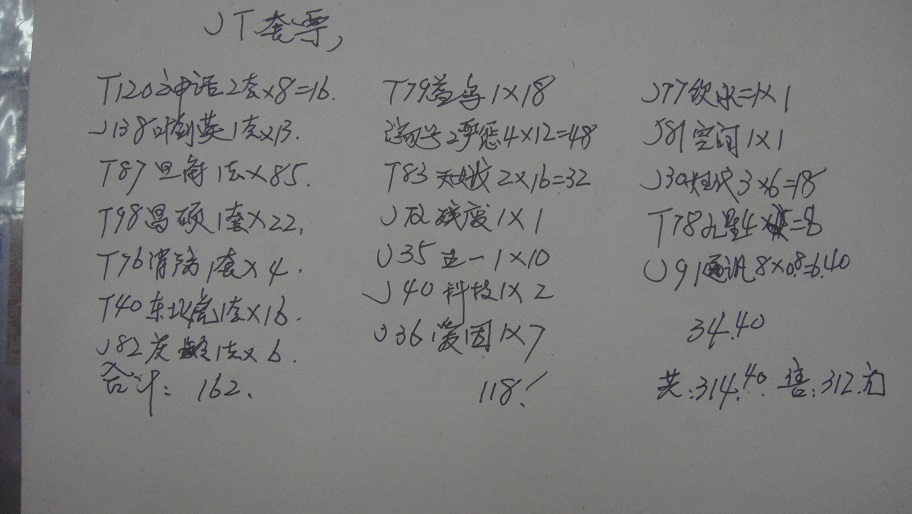 JT套票,
T120神话2套×8=16.
J138叶剑英1套×13.
T87旦角1套×85.
T98昌硕1套×22.
T76消防1套×4.
T40东北虎1套×16.
J82龄1套×6.
合计: 162.
T79益鸟1×18
2 4×12=48
T83天鹅2×16=32
J72残废1×1
J35五一1×10
J40科技1×2
J36爱因1×7
118!
J77饮水=1×1
J81空间1×1
J30代3×6=18
T78九星4×=8
J91通讯8×0.8=6.40
34.40
共:314.40. 售:312.元